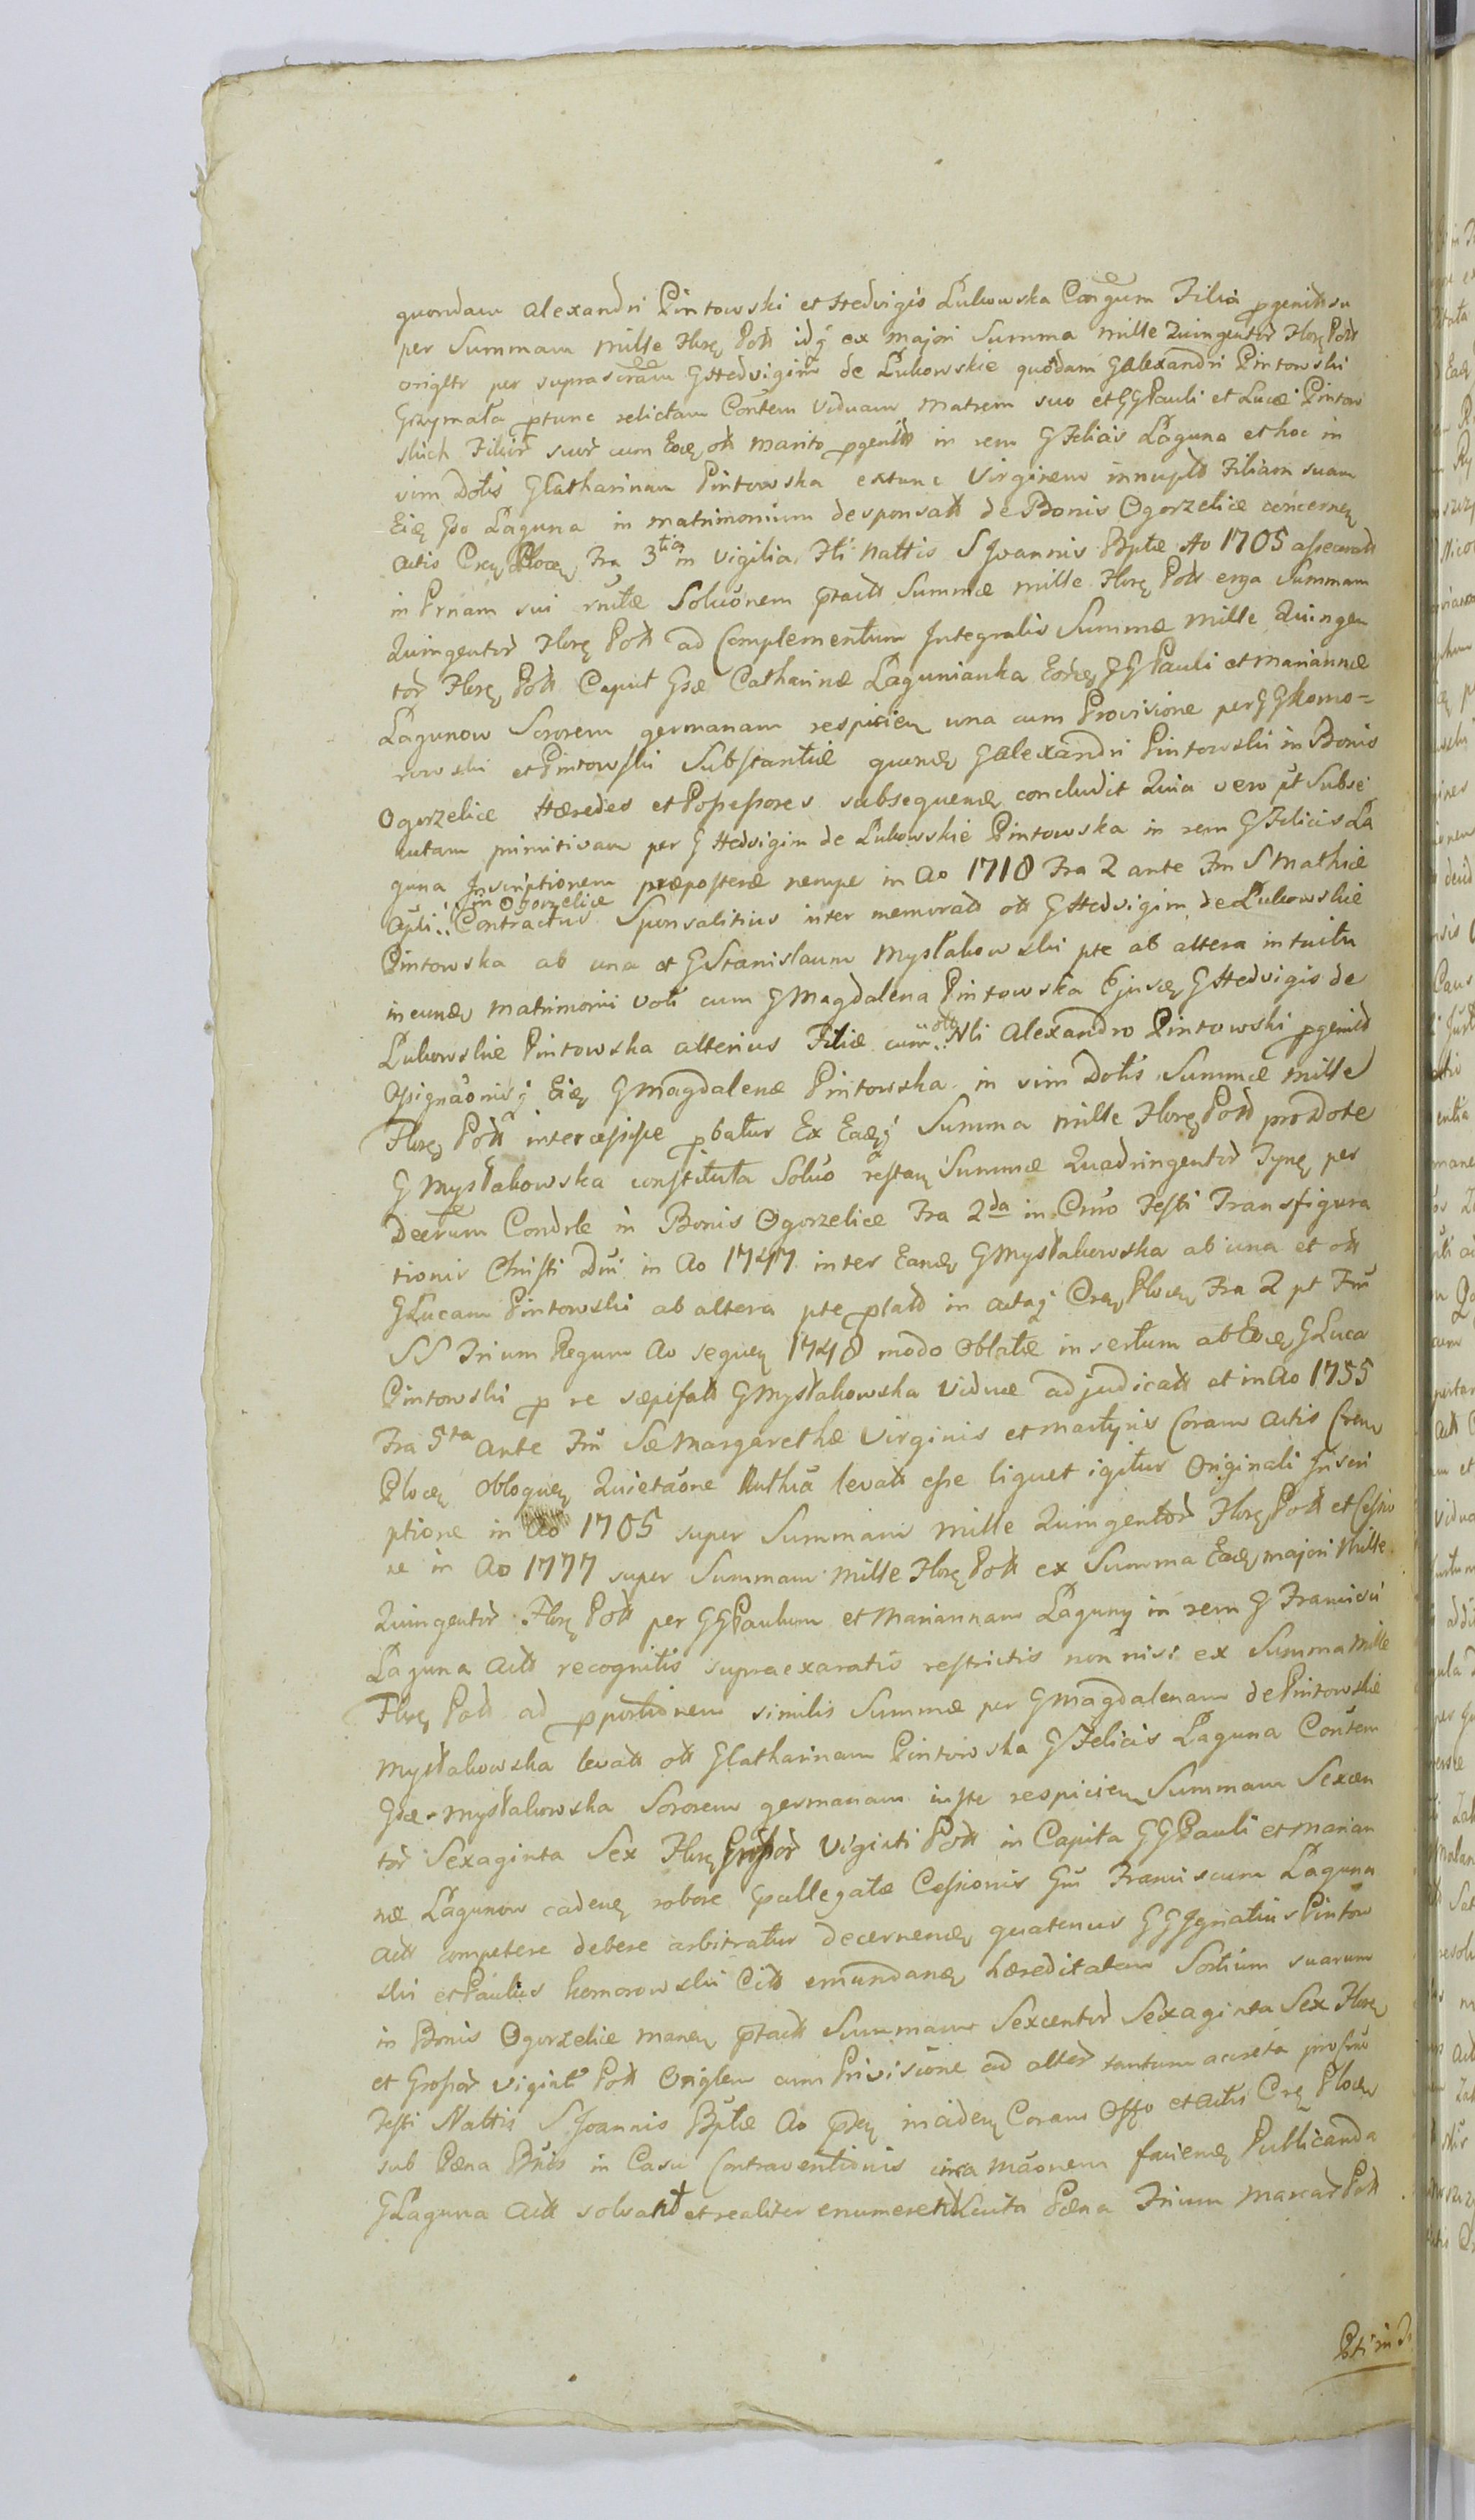 quondam Alexandri Pintowski et Hedvigis Lukowska Congum Filia pgenitt su
per Summam mille Flor Poll idq ex majori Summa mille Quingentor Flor Poll
origltr per suprascram G Hedvigim de Lukowskie quodam G Alexandri Pintowski
Grzymała ptunc relictam Contem Viduam Matrem suo et GG Pauli et Lucæ Pintow
skich Filior suor cum Eod ott Marito pgenitt in rem G Felicis Laguna et hoc in
vim Dotis G Catharinam Pintowska extunc Virginem innuptt Filiam suam
Eid Gso Laguna in matrimonium desponsatt de Bonis Ogorzelice concernen
Actis Cren Plocen Fra 3tia in Vigilia Fti Nattis S Joannis Bptæ Ao 1705 assecuratt
in Prnam sui rnitæ Soluonem ptactt Summæ mille Flor Poll erga Summam
Quingentor Flor Poll ad Complementum Integralis Summæ mille Quingen
tor Flor Poll Caput Gsæ Catharinæ Lagunianka Eord GG Pauli et Mariannæ
Lagunow Sororem germanam respicien una cum Provisione per GG Komo=
rowski et Pintowski Substantiæ quond G Alexandri Pintowski in Bonis
Ogorzelice Hæredes et Possessores subsequend concludit Quia vero pt Subse
cutam primitivam per G Hedvigim de Lukowskie Pintowska in rem G Felicis La
guna Inscriptionem præposteræ nempe in Ao 1718 Fra 2 ante Fm S Mathiæ
in Ogorzelice
Apli Contractus Sponsalitius inter memoratt ott G Hedvigim de Lukowskie
Pintowska ab una et G Stanislaum Mysłakowski pte ab altera intuitu
ineund matrimonii voti cum G Magdalena Pintowska Ejusd G Hedvigis de
Lukowskie Pintowska alterius Filiæ cum ott Nli Alexandro Pintowski pgenitt
Assignaonisq Eid G Magdalenæ Pintowska in vim Dotis Summæ mille
Flor Poll intercessisse pbatur Ex Eadq Summa mille Flor Poll pro Dote
G Mysłakowska constituta Soluo restan Summæ Quadringentor Tynf per
Decrum Condrle in Bonis Ogorzelice Fra 2da in Crno Festi Transfigura
tionis Christi Dni in Ao 1747 inter Eand G Mysłakowska ab una et ott
G Lucam Pintowski ab altera pte platt in actaq Cren Plocen Fra 2 pt Fm
SS Trium Regum Ao sequen 1748 modo Oblatæ insertum ab Eod G Luca
Pintowski p re sæpefatt G Mysłakowska Viduæ adjudicatt et in Ao 1755
Fra 5ta Ante Fm Sæ Margarethæ Virginis et Martyris Coram Actis Cren
Plocen obloquen Quietaone levatt esse liquet igitur Originali Inscri
ptione in Ao 1705 super Summam mille Quingentor Flor Poll et Cessio
ne in Ao 1777 super Summam mille Flor Poll ex Summa Ead majori Mille
Quingentor Flor Poll per GG Paulum et Mariannam Laguny in rem G Francisci
Laguna Actt recognitis supraexaratis restrictis non nisi ex Summa Mille
Flor Poll ad pportionem similis Summæ per G Magdalenam de Pintowskie
Mysłakowska levatt ott G Catharinam Pintowska G Felicis Laguna Contem
Gsæ Mysłakowska Sororem germanam juste respicien Summam Sexcen
tor Sexaginta Sex Flor Grossor Viginti Poll in Capita GG Pauli et Marian
næ Lagunow caden robore pallegatæ Cessionis Gm Franciscum Laguna
Actt competere debere arbitratur decernend quatenus GG Ignatius Pintow
ski et Paulus Komorowski Citt emundand hæreditatem Sortium suarum
in Bonis Ogorzelice manen ptactt Summam Sexcentor Sexaginta Sex Flor
et Grossor viginti Poll Origlem cum Privisione ad alter tantum acreta pro Crno
Festi Nattis S Joannis Bptæ Ao pn inciden Coram Offo et Actis Cren Plocen
sub Pæna Bnis in Casu Contraventionis circa Maonem faciend Publicanda
G Laguna Actt solvant et realiter enumerent Luita Pæna Trium Marcar Poll